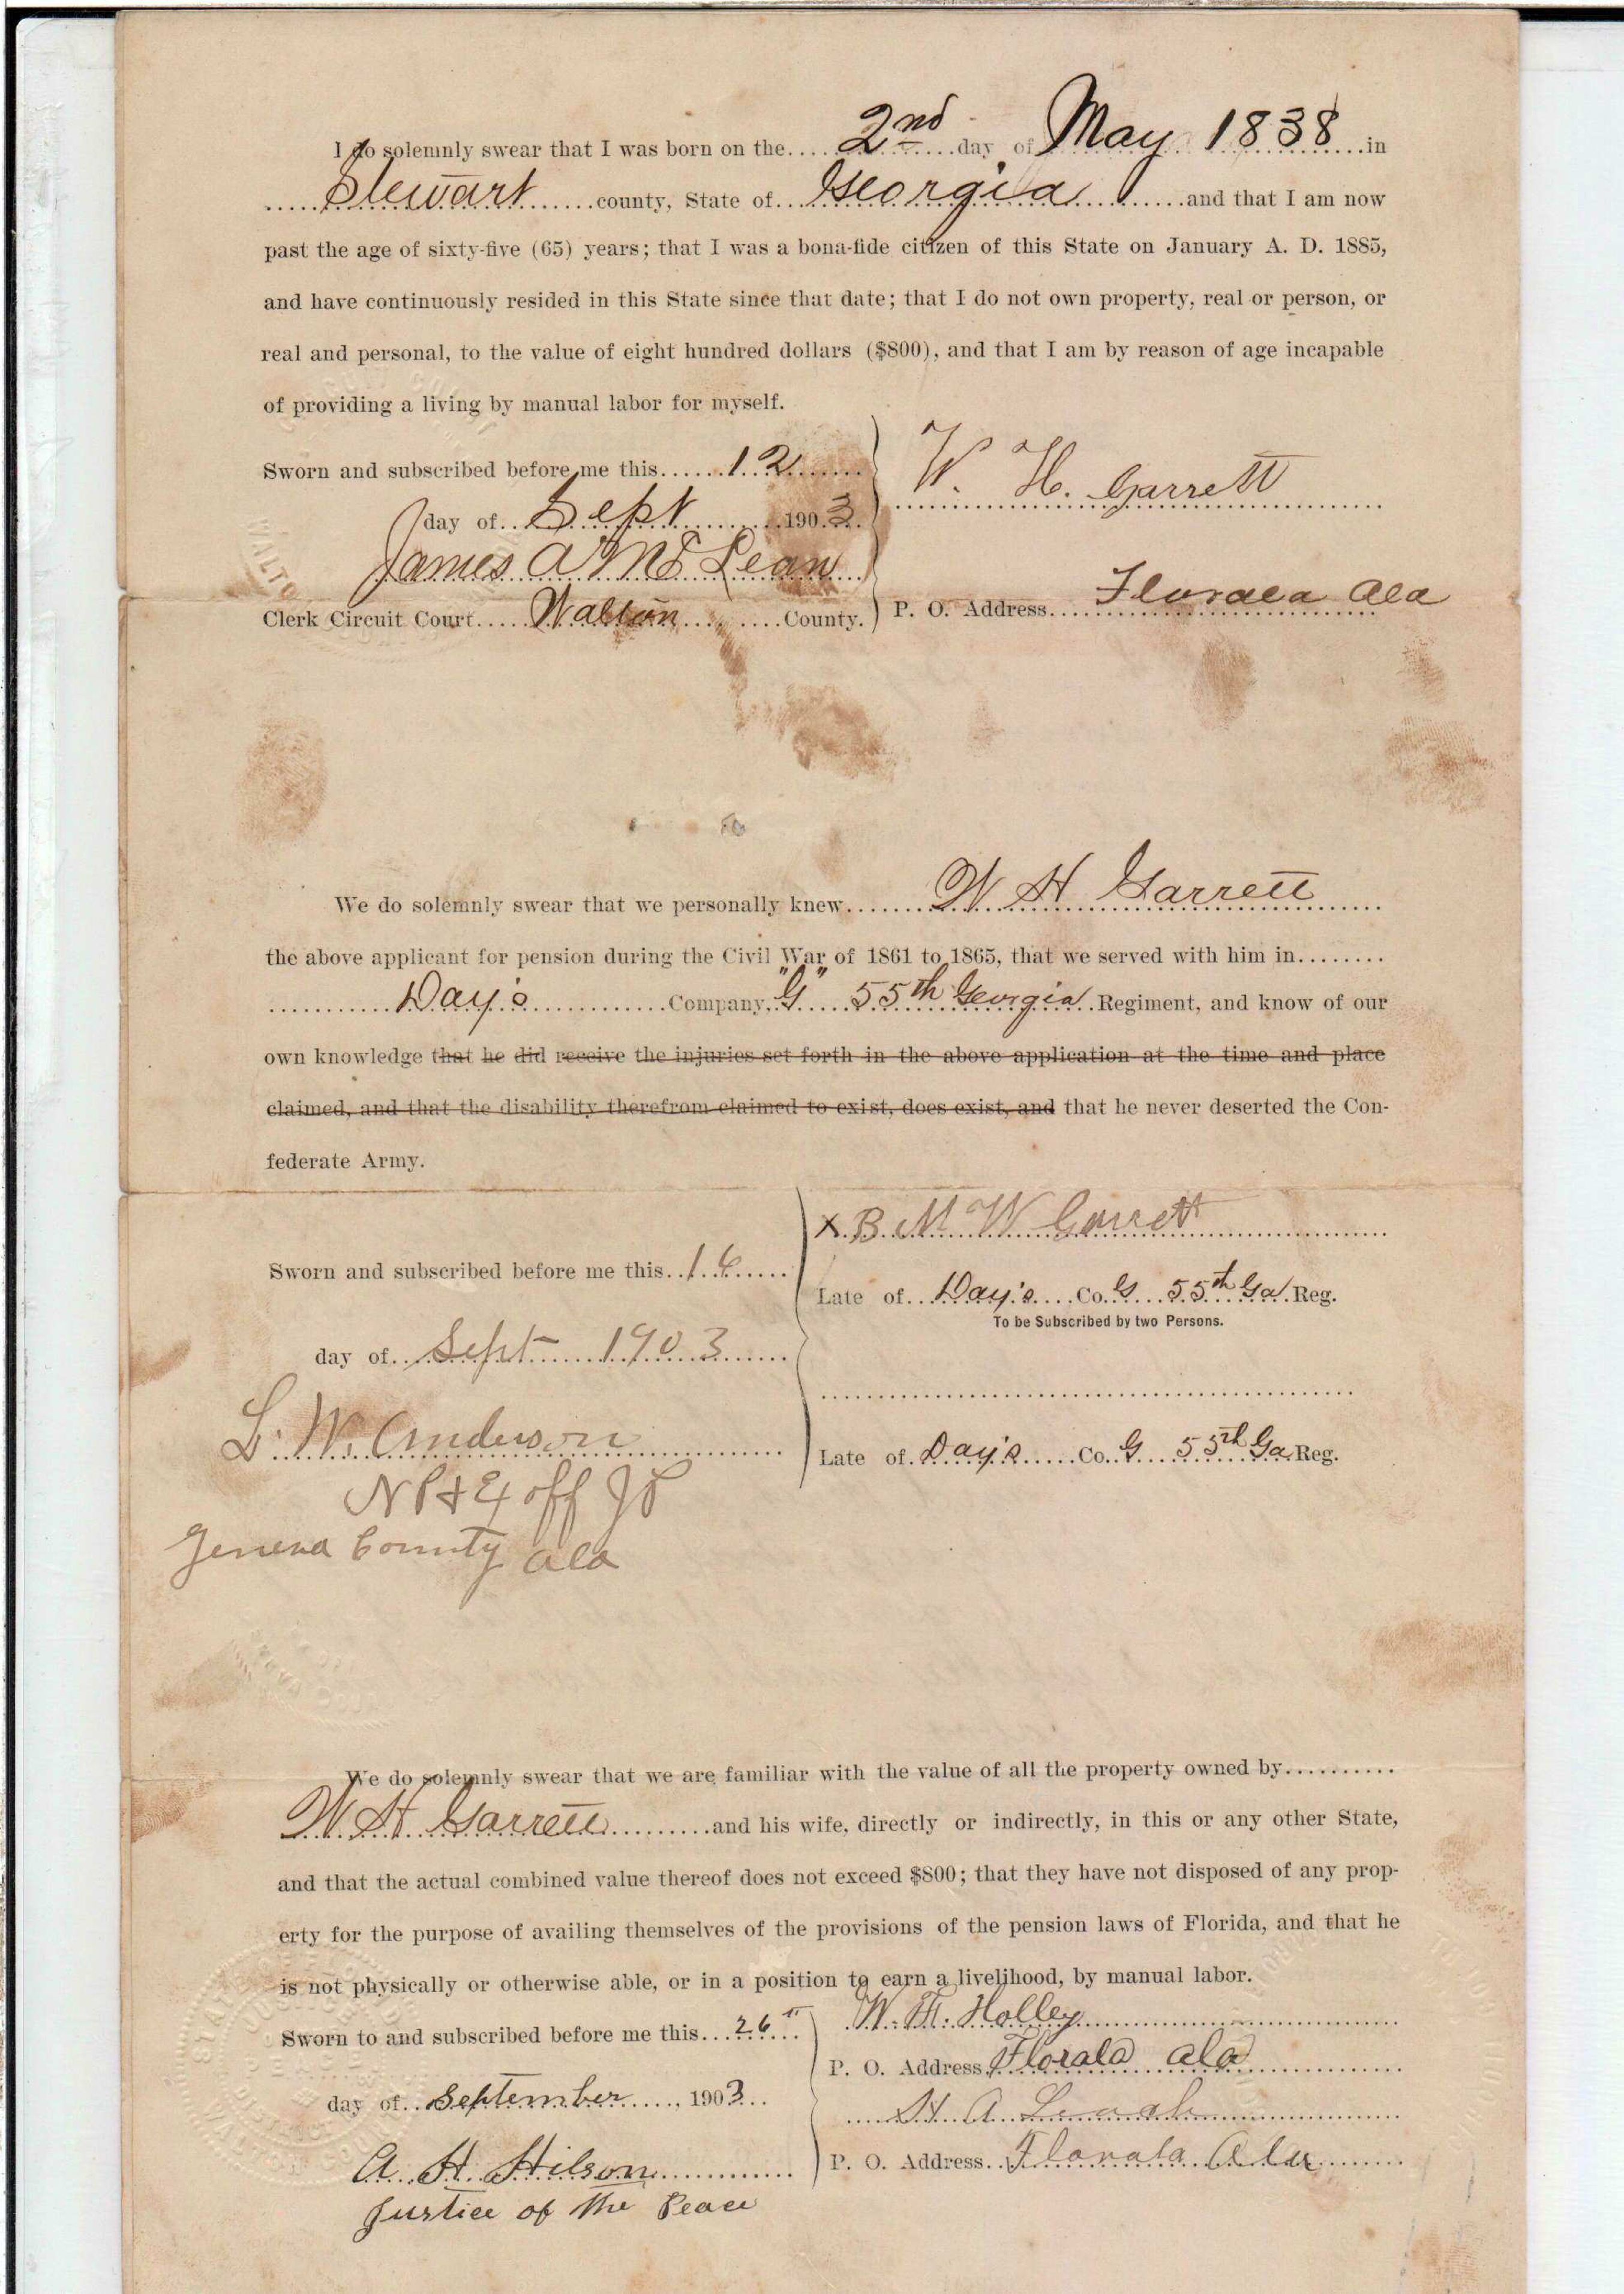 I do solemnly swear that I was born on the 2nd day of May 1838 in
Stewart county, State of Georgia and that I am now
past the age of sixty-five (65) years; that I was a bona-fide citizen of this State on January A. D. 1885,
and have continuously resided in this State since that date; that I do not own property, real or person, or
real and personal, to the value of eight hundred dollars ($800), and that I am by reason of age incapable
of providing a living by manual labor for myself.
Sworn and subscribed before me this 12
W. H. Garrett
day of Sept 1903
James A McLean
Clerk Circuit Court Walton County.
P. O. Address Florala Ala
We do solemnly swear that we personally knew W H Garrett
the above applicant for pension during the Civil War of 1861 to 1865, that we served with him in
Day's Company, "G" 55th Georgia Regiment, and know of our
own knowledge that he did receive the injuries set forth in the above application at the time and place
claimed, and that the disability therefrom claimed to exist, does exist, and that he never deserted the Con-
federate Army.
X B M W Garrett
Sworn and subscribed before me this 16
Late of Day's Co. G 55th Ga Reg.
To be Subscribed by two Persons.
day of Sept 1903
L. W. Anderson
Late of Day's Co. G 55th Ga Reg.
N P & Ex off J P
Geneva County Ala
We do solemnly swear that we are familiar with the value of all the property owned by
W H Garrett and his wife, directly or indirectly, in this or any other State,
and that the actual combined value thereof does not exceed $800; that they have not disposed of any prop-
erty for the purpose of availing themselves of the provisions of the pension laws of Florida, and that he
is not physically or otherwise able, or in a position to earn a livelihood, by manual labor.
W. M. Holley
Sworn to and subscribed before me this 26
P. O. Address Florala Ala
day of September, 1903
H. A.
A. H. Hilson
P. O. Address Florala Ala
Justice of the Peace